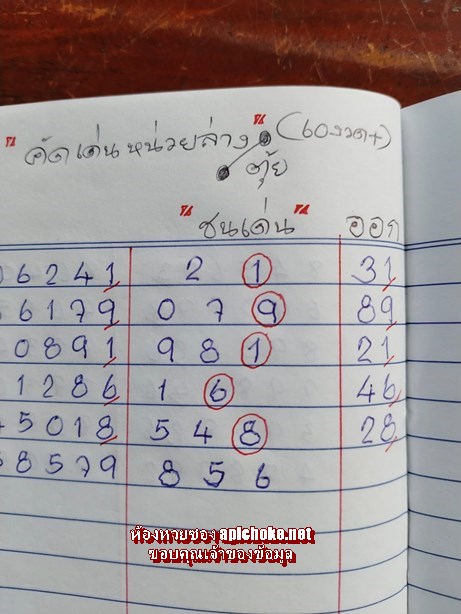 " คัดเด่น หน่วยล่าง " (60งวด+)
ตุ้ย
" ชนเด่น " ออก
06241 2 1 31
6179 0 7 9 89
0891 9 8 1 21
1286 1 6 46
45018 5 4 8 28
8579 8 5 6
ห้องหวยซอง apichoke.net
ขอบคุณเจ้าของข้อมูล